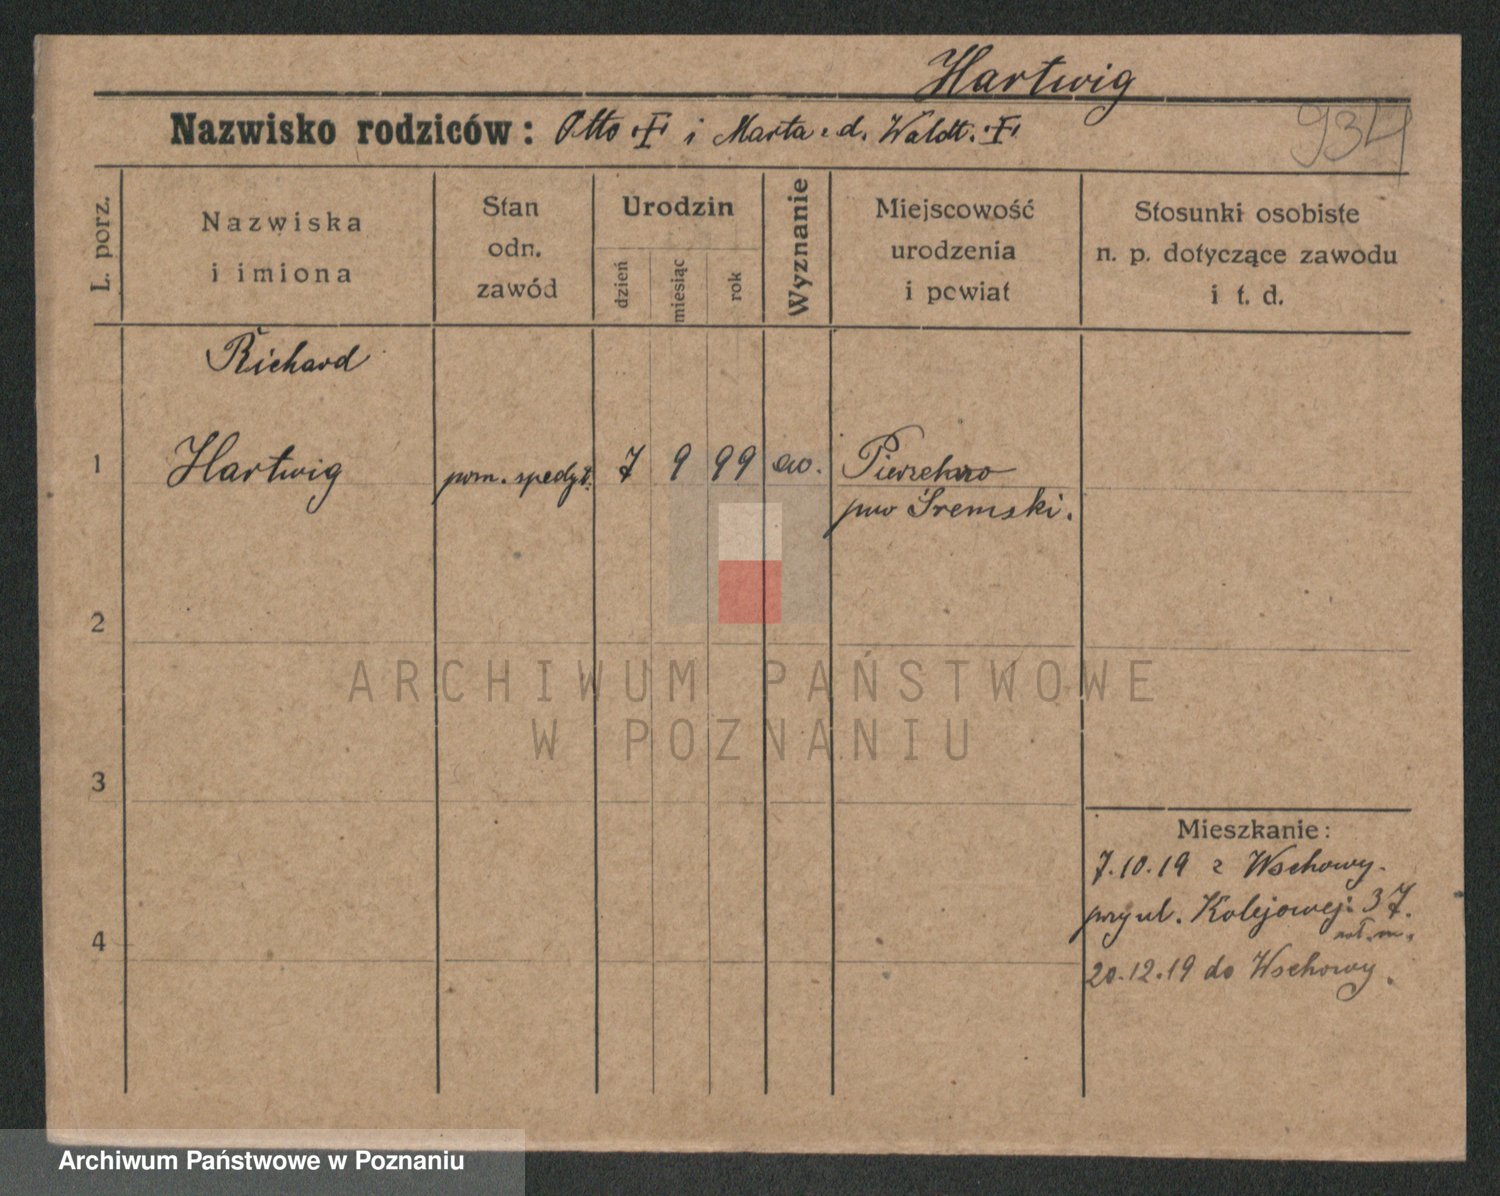 Hartwig
934
Nazwisko rodziców: Otto i Marta d. Waldt.
L. porz.
Nazwiska
i imiona
Stan
odn.
zawód
Urodzin
dzień
miesiąc
rok
Wyznanie
Miejscowość
urodzenia
i powiat
Stosunki osobiste
n. p. dotyczące zawodu
i t. d.
Richard
1 Hartwig pom. spedyt. 7 9 99 ew. Pierzchno
pow Śremski.
2
ARCHIWUM PAŃSTWOWE
W POZNANIU
3
Mieszkanie:
7.10.19 z Wschowy.
przy ul. Kolejowej: 37.
4
20.12.19 do Wschowy.
Archiwum Państwowe w Poznaniu